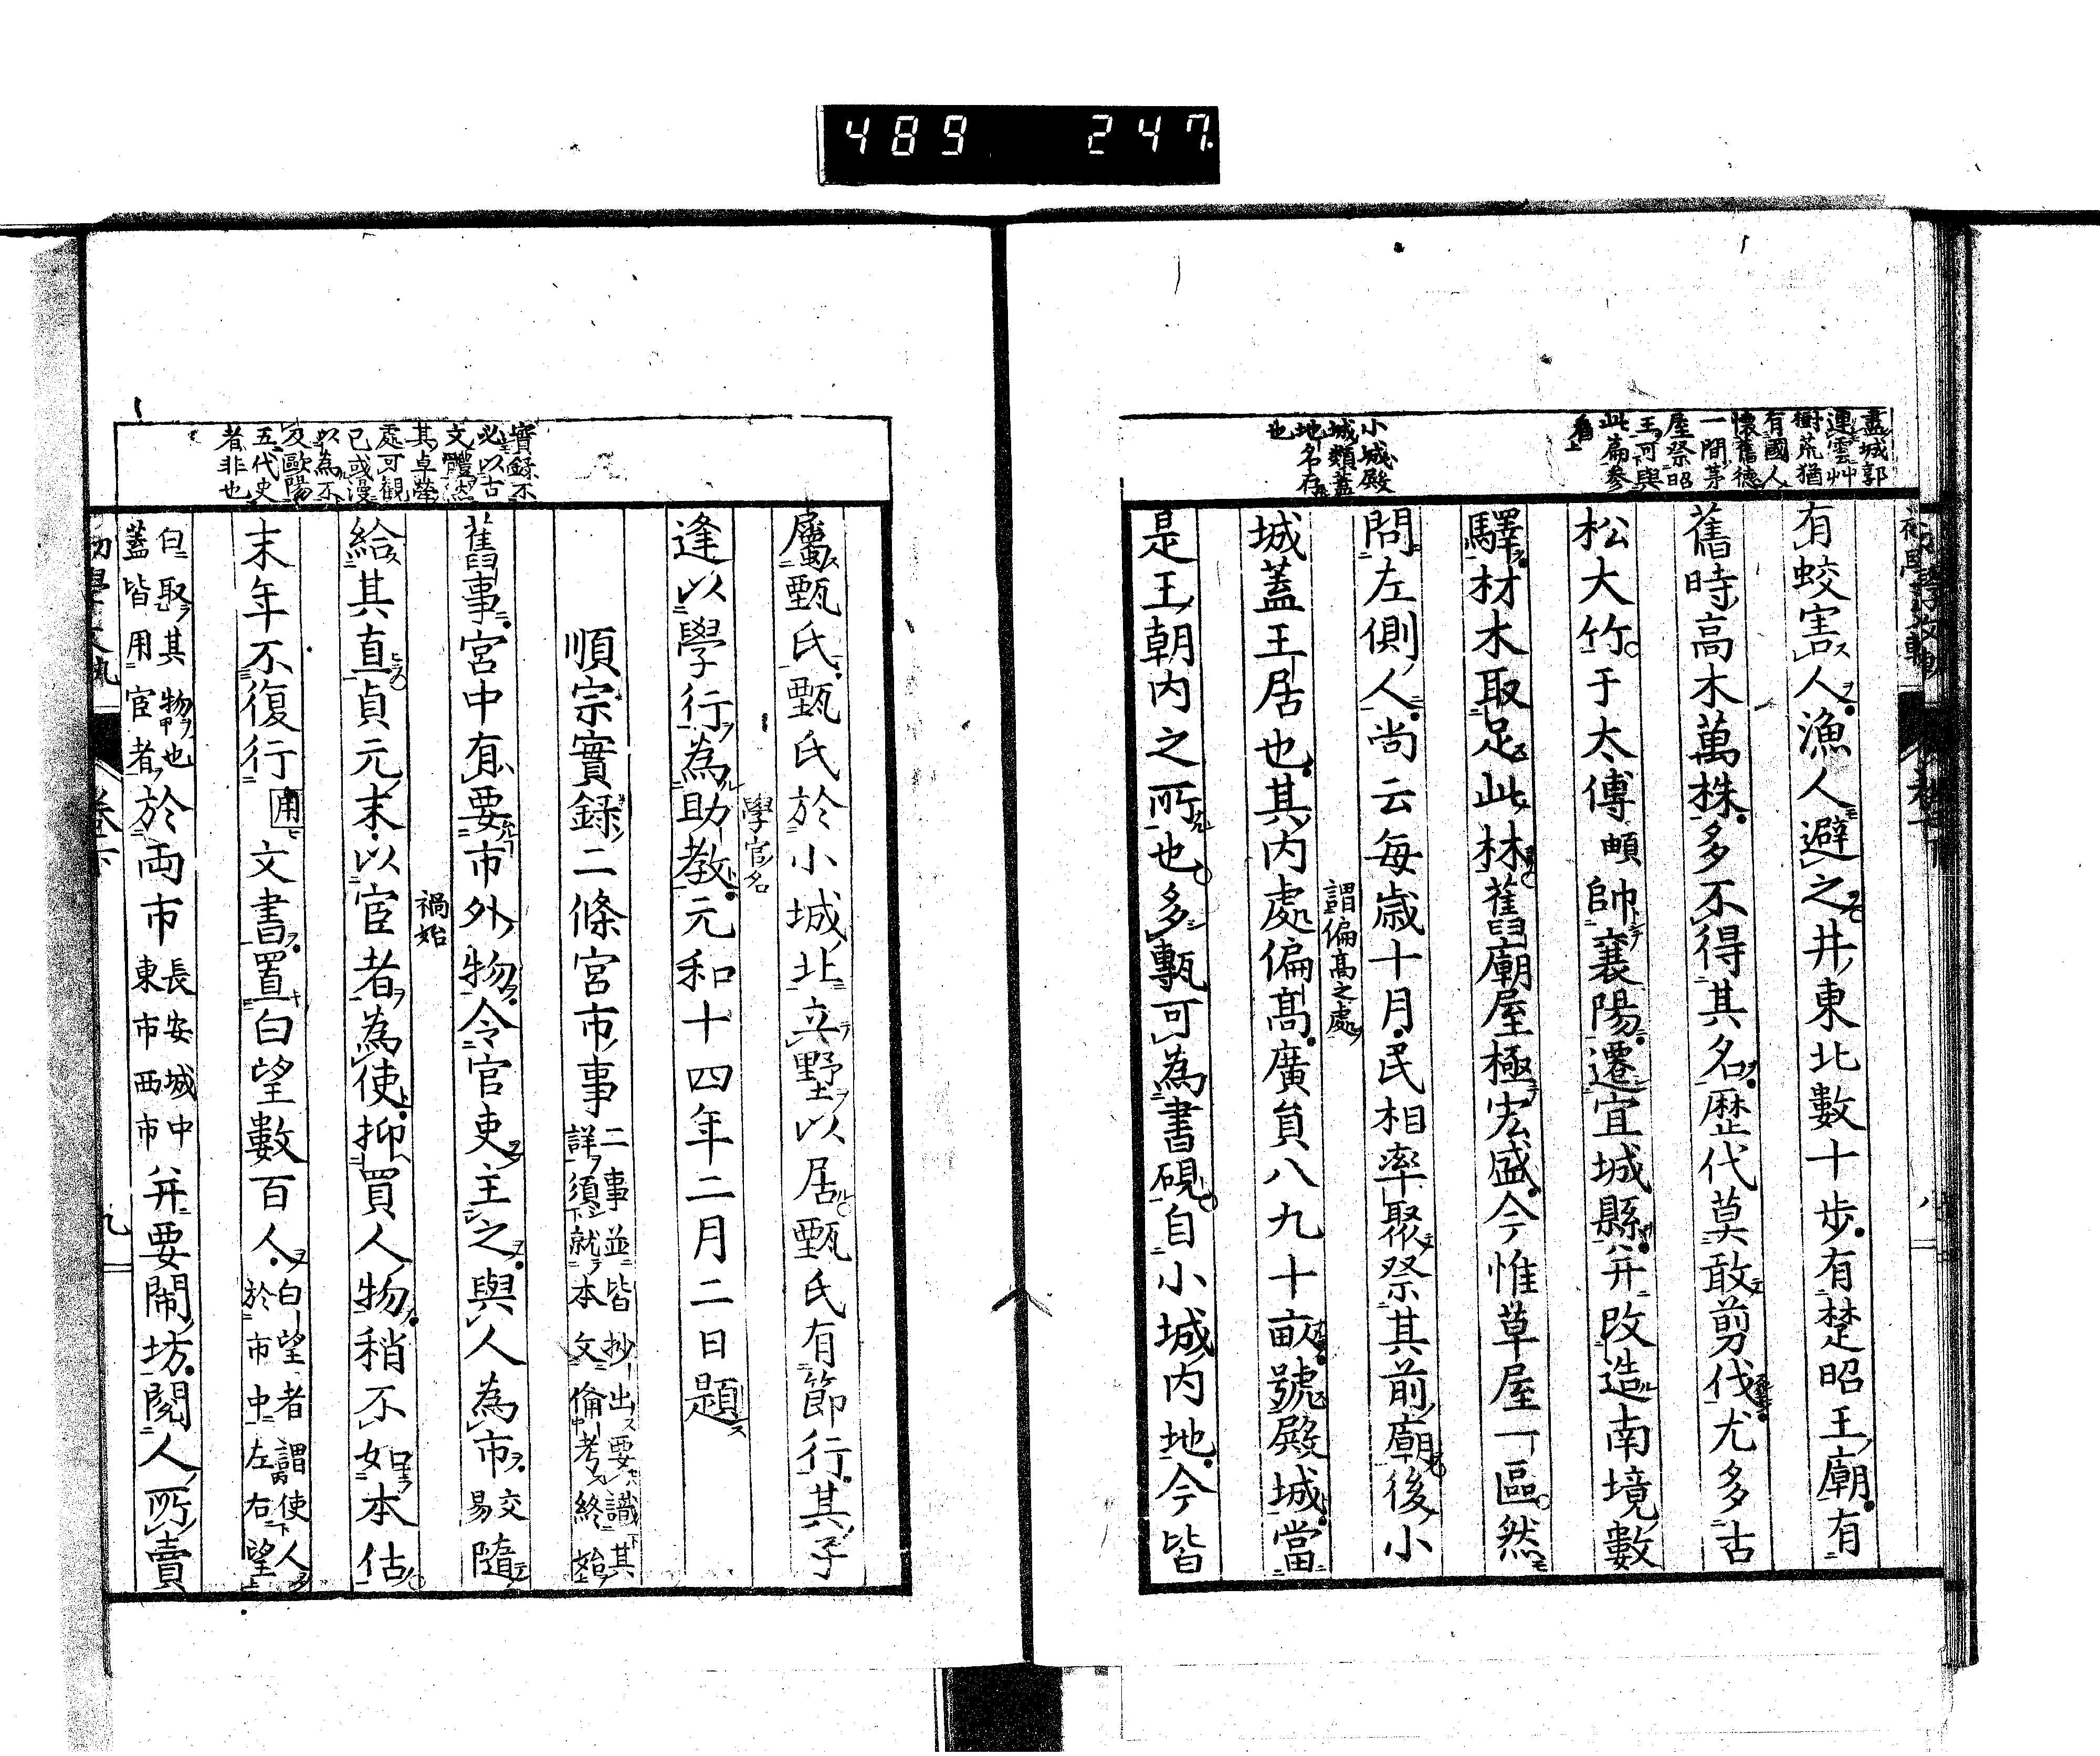 489 247
盡城郭
連雲艸
樹荒猶
有國人
懷舊德
一間茅
屋祭昭
王可與
此篇參
看上
有蛟害人漁人避之井東北數十步有楚昭王廟有
舊時高木萬株多不得其名歷代莫敢剪伐尤多古
松大竹于太傅頔帥襄陽遷宜城縣并改造南境數
驛材木取足此林舊廟屋極宏盛今惟草屋一區然
問左側人尚云每歲十月民相率聚祭其前廟後小
小城殿
城類蓋
地名存
也
謂偏高之處
城蓋王居也其内處偏高廣員八九十畝號殿城當
是王朝内之所也多甎可為書硯自小城内地今皆
屬甄氏甄氏於小城北立墅以居甄氏有節行其子
學官名
逢以學行為助教元和十四年二月二日題
順宗實錄二條宮市事
二事並皆抄出要識其
詳須就本文備考終始
實錄不
必以古
文體
其卓犖
處可觀
已或漫
以為不
及歐陽
五代史
者非也
舊事宮中有要市外物令官吏主之與人為市交易隨
禍始
給其直貞元末以宦者為使抑買人物稍不如本估
末年不復行用文書置白望數百人
白望者謂使人
於市中左右望
白取其物也
蓋皆用宦者
於兩市
長安城中
東市西市
并要鬧坊閱人所賣
卷下
九